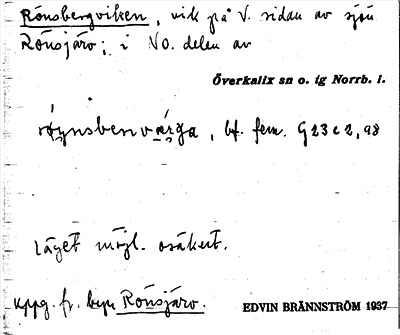 Rönsbergviken, vik på V. sidan av sjön
Rönsjärv; i NO. delen av
Överkalix sn o. tg Norrb. l.
bf. fem. G23c2,98
Läget möjl. osäkert.
uppg. fr. byn Rönsjärv.
EDVIN BRÄNNSTRÖM 1937